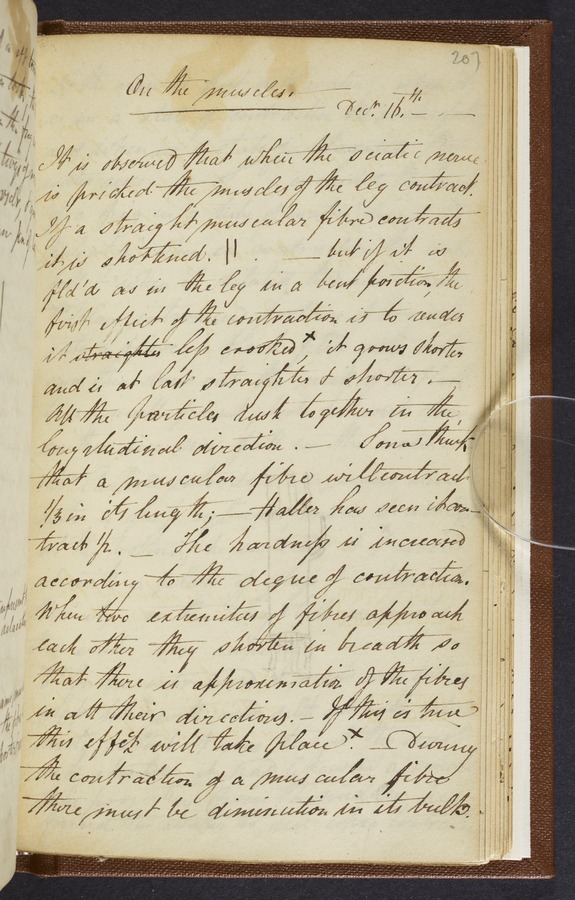 207
On the muscles.
Decr. 16th. —
It is observed that when the sciatic nerve
is pricked the muscles of the leg contract.
If a straight muscular fibre contracts
it is shortened. || . — but if it is
fld'd as in the leg in a bent position, the
first effect of the contraction is to render
it straighter less crooked x, it grows shorter
and is at last straighter & shorter. —
All the particles rush together in the
longitudinal direction. — Some think
that a muscular fibre will contract
1/3 in its length; — Haller has seen it con-
tract 1/2. — The hardness is increased
according to the degree of contraction.
When two extremities of fibres approach
each other they shorten in breadth so
that there is approximation of the fibres
in all their directions. — If this is true
this effect will take place x. — During
the contraction of a muscular fibre
there must be diminution in its bulk.